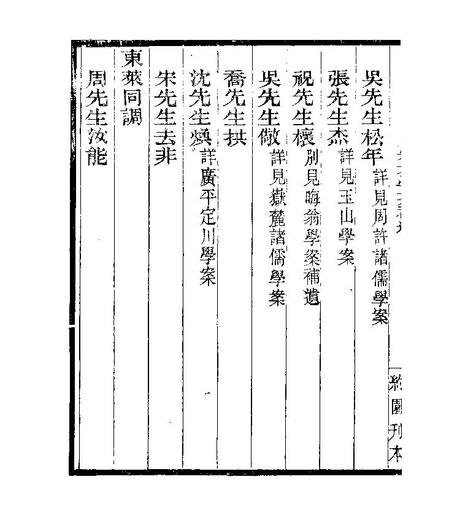 吳先生松年詳見周許諸儒學案
張先生杰詳見玉山學案
祝先生櫰別見晦翁學案補遺
吳先生儆詳見嶽麓諸儒學案
喬先生拱
沈先生煥詳廣平定川學案
宋先生去非
東萊同調
周先生汝能
約園刊本